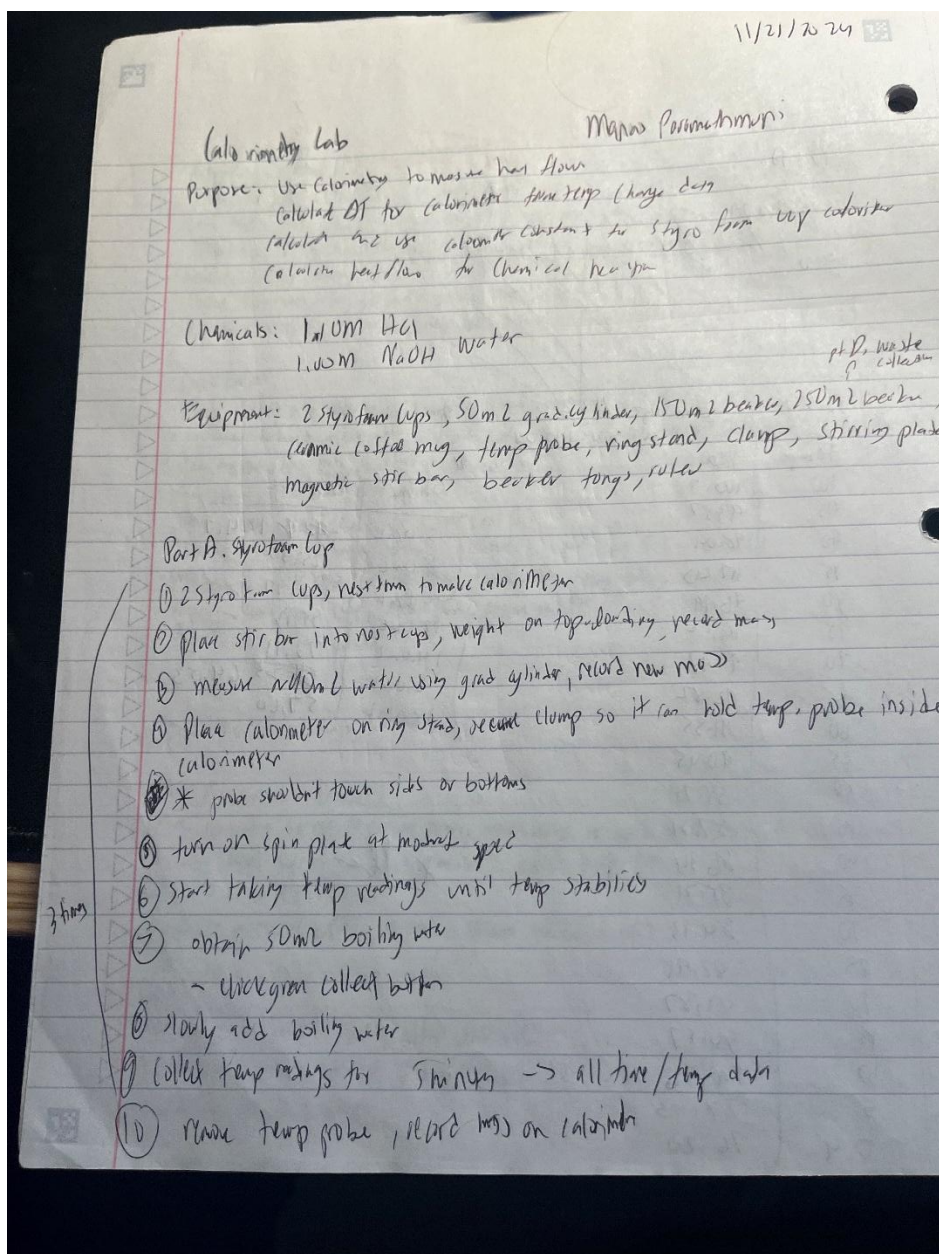 11/21/2024
Calorimetry Lab
Purpose: Use Calorimetry to measure heat flow
Calculate ΔT for calorimeter from temp change data
Calculate and use calorimeter constant for styro foam cup calorimeter
Calculate heat flow for Chemical
Chemicals: HCl
1.00M NaOH Water
pt D, waste
collection
Equipment: 2 styrofoam cups, 50mL grad. cylinder, 150mL beaker, 250mL beaker,
ceramic coffee mug, temp probe, ring stand, clamp, stirring plate
magnetic stir bar, beaker tongs, ruler
Part A. Styrofoam Cup
① 2 Styrofoam cups, nest them to make calorimeter
② place stir bar into nest cups, weight on top-loading, record mass
③ measure water using grad cylinder, record new mass
④ Place calorimeter on ring stand, secure clamp so it can hold temp. probe inside
calorimeter
* probe shouldn't touch sides or bottoms
⑤ turn on spin plate at
⑥ start taking temp readings until temp
3 times
⑦ obtain 50mL boiling water
- click green collect button
⑧ slowly add boiling water
⑨ collect temp readings for -> all time/temp data
⑩ remove temp probe, record mass on